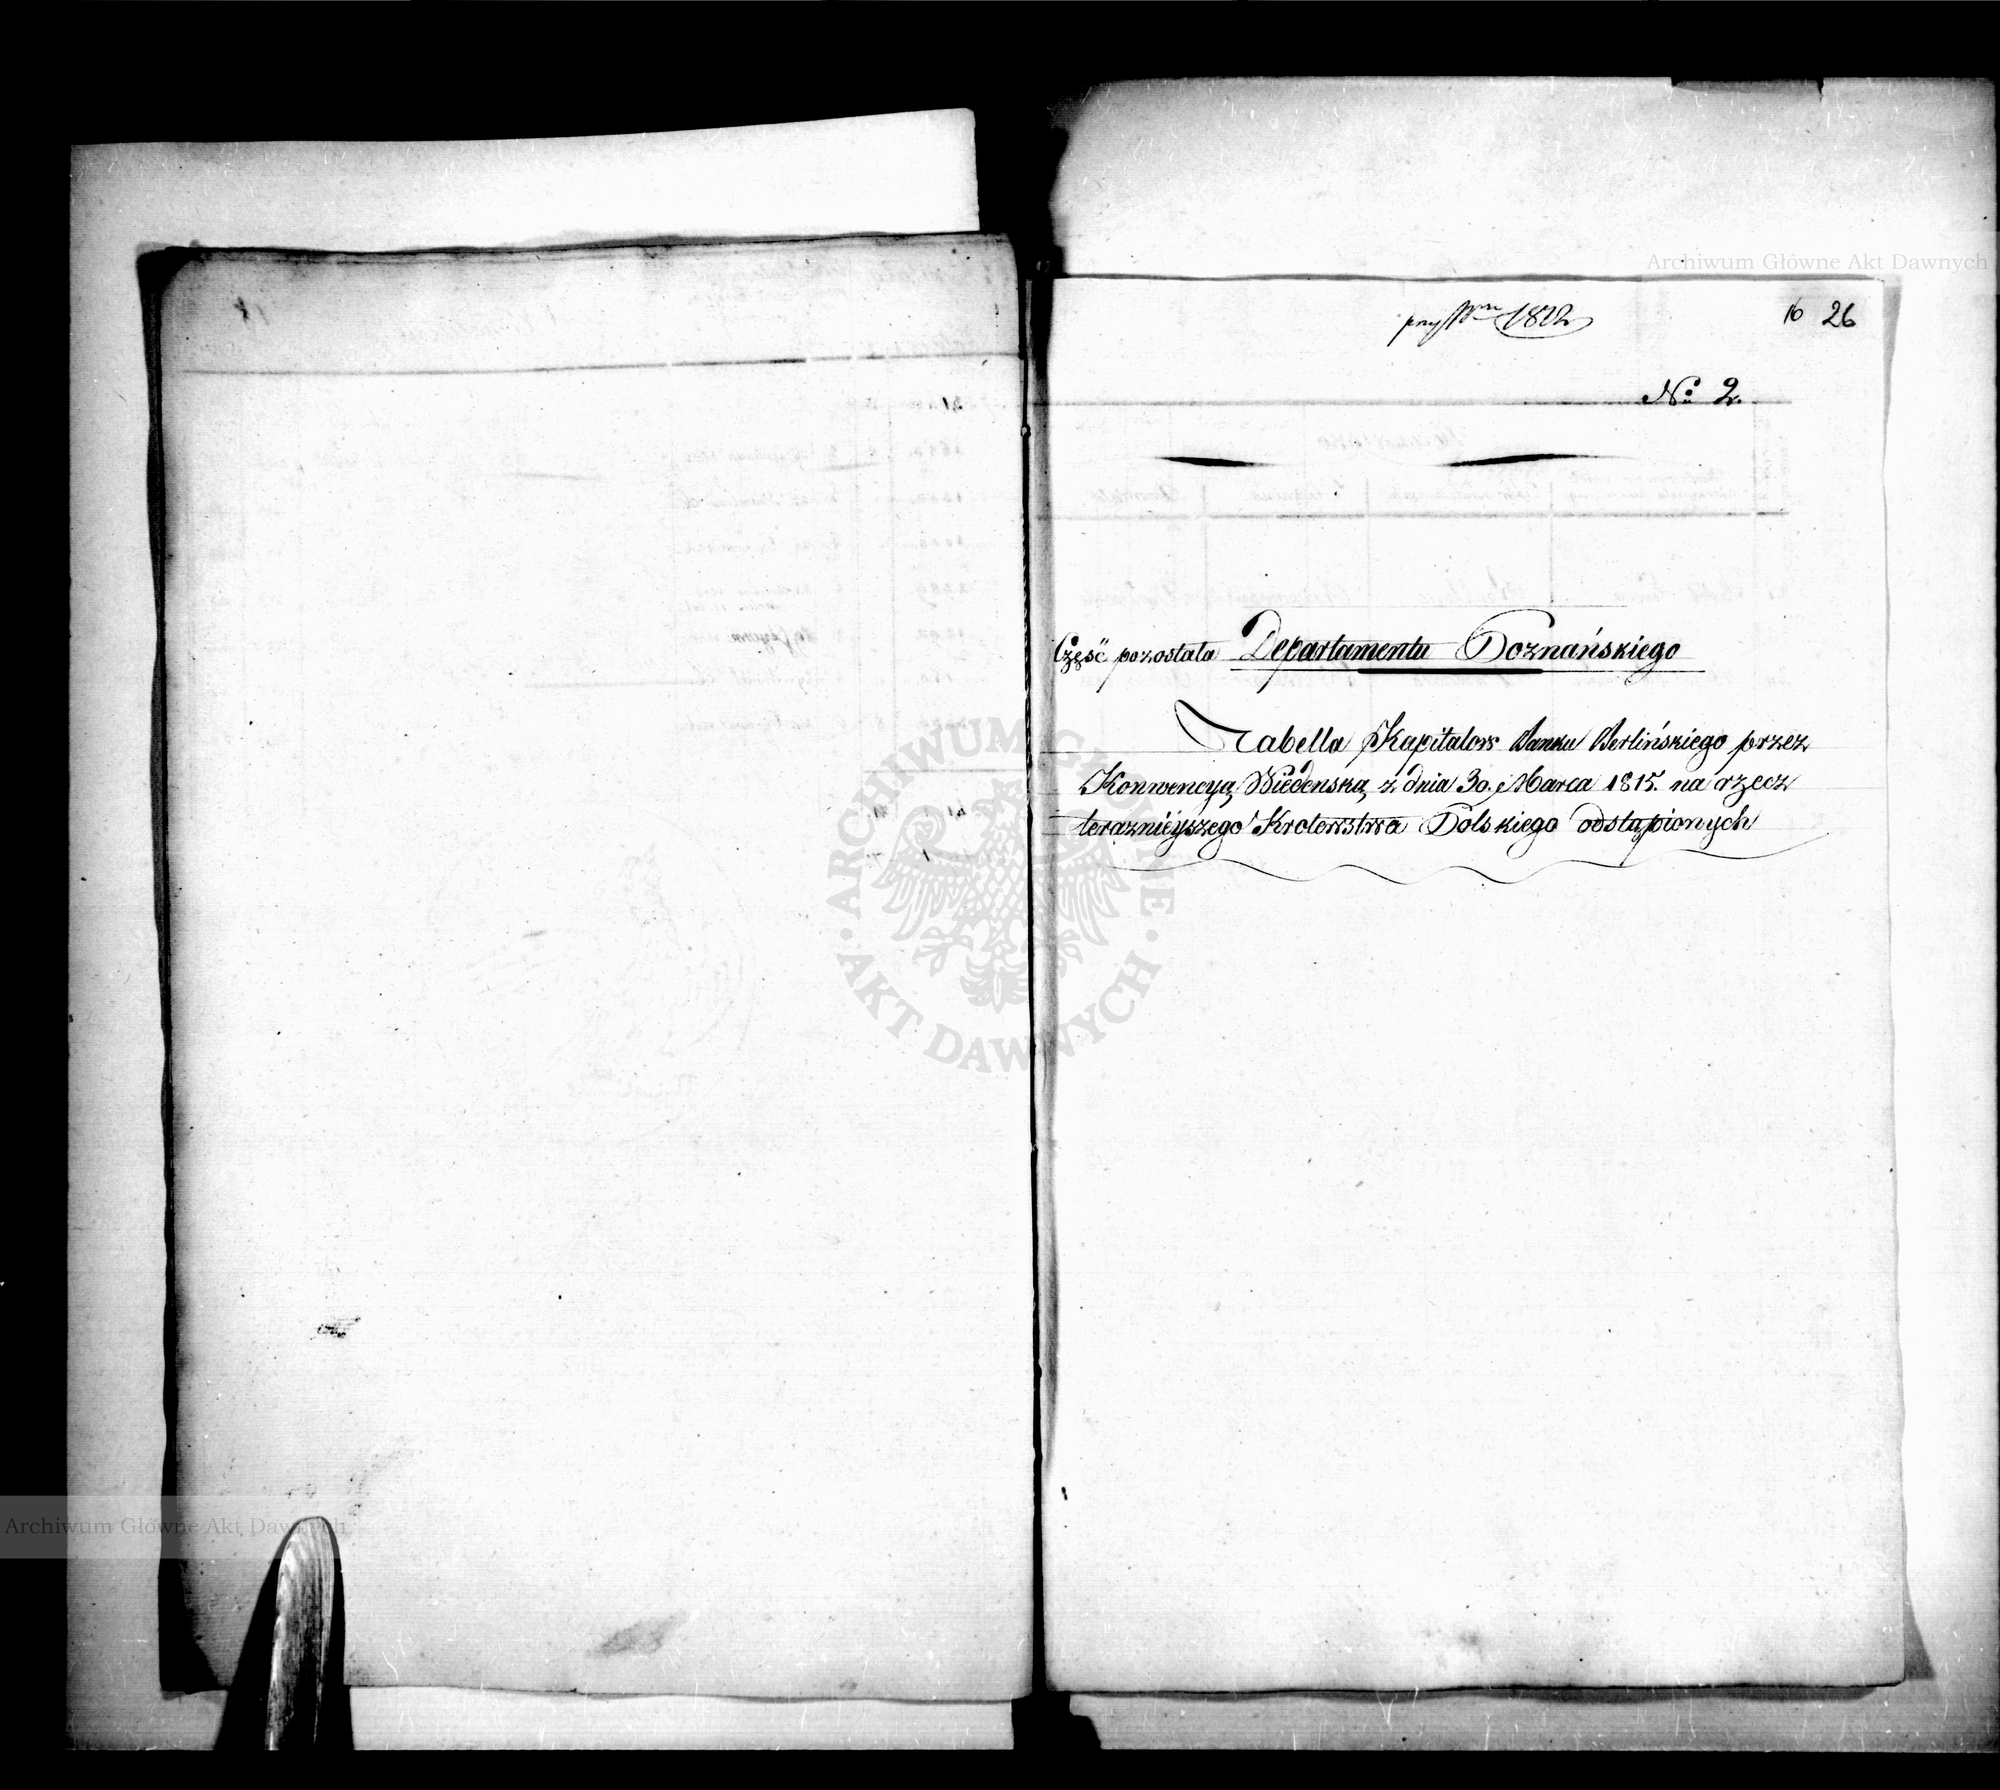 Archiwum Główne Akt Dawnych
1822
16 26
No 2.
Część pozostała Departamentu Poznańskiego
Tabella Kapitałow Banku Berlińskiego przez
Konwencyą Wiedenską z dnia 30. Marca 1815. na rzecz
teraznieyszego Krolewstwa Polskiego odstąpionych
ARCHIWUM GŁÓWNE
AKT DAWNYCH
Archiwum Główne Akt Dawnych